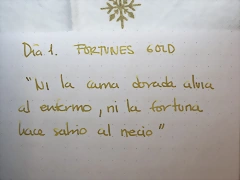 Día 1. FORTUNES GOLD
"Ni la cama dorada alivia
al enfermo, ni la fortuna
hace sabio al necio"